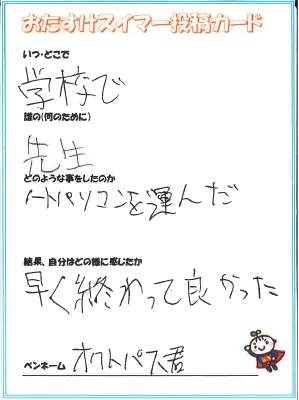 おたすけスイマー投稿カード
いつ・どこで
学校で
誰の(何のために)
先生
どのような事をしたのか
ノートパソコンを運んだ
結果、自分はどの様に感じたか
早く終わって良かった
ペンネーム オクトパス君